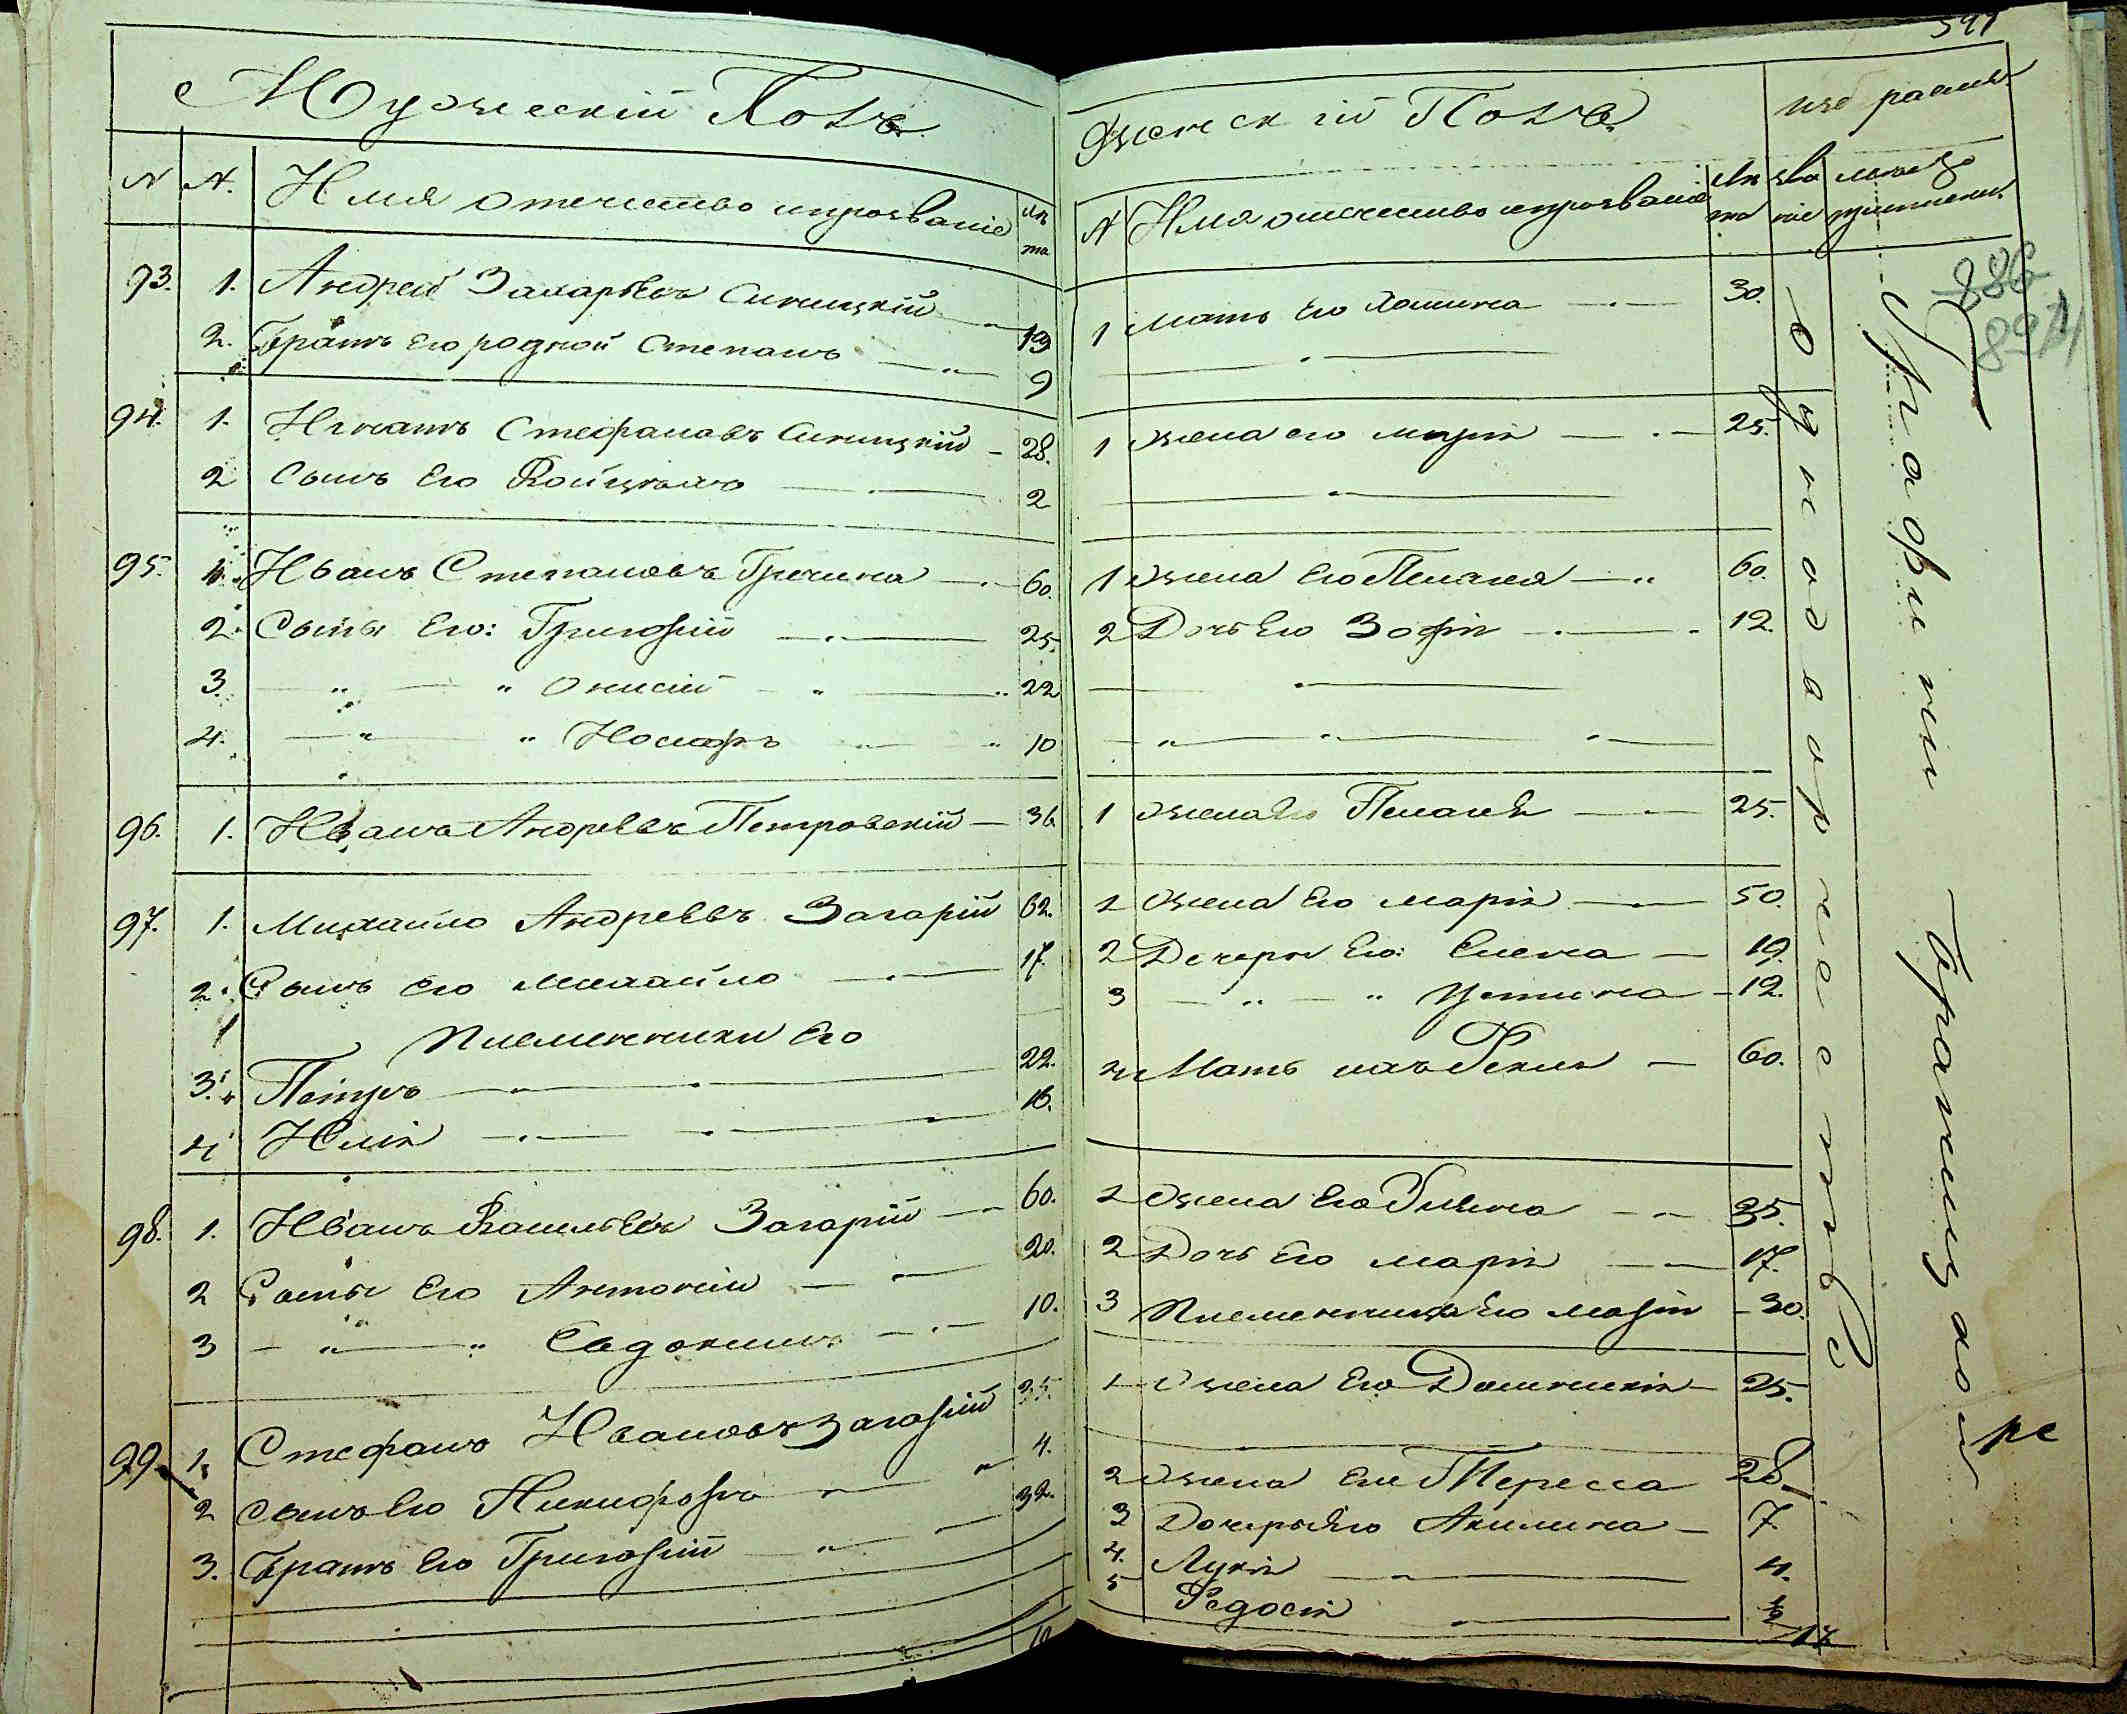 Мужескій Полъ
N N. Имя отечество ипрозваніе лѣ та
93. 1. Андрей Захарьевъ Синицкій 19
2. Братъ Его родной Степанъ 9
94. 1. Игнатъ Стефановъ Синицкій 28.
2 Сынъ Его Войцѣхъ 2
95. 1. Иванъ Степановъ Гречина 60.
2. Сыны Его: Григорій 25.
3. " " Онисій " 22
4. " " Іосифъ " 10
96. 1. Иванъ Андреевъ Петровскій 36
97. 1. Михайло Андреевъ Загарій 62.
2. Сынъ Его Михайло 17.
Племенники Его
3. Петръ 22.
4 Илія 16.
98. 1. Иванъ Васильевъ Загарій 60.
2 Сыны Его Антоній 20.
3 " " Евдокимъ 10.
99. 1. Стефанъ Ивановъ Загорій 35.
2 Сынъ Его Никифоръ 4.
3. Братъ Его Григорій 32.
19
591
Женскій Полъ
изъ
N Имя отечество ипрозваніе Лѣ та зва ніе
886
891
1 Мать Его 30.
1 Жена его Марія 25.
1 Жена Его Пелагея 60.
2 Дочь Его Зофія 12.
1 Жена Его Пелагея 25.
1 Жена Его Марія 50.
2 Дочери Его: Елена 19.
3 " " Устина 12.
4 Мать ихъ Фекла 60.
1 Жена Его Елена 35.
2 Дочь Его Марія 17.
3 Племенница Его Марія 30.
1 Жена Его Доминикія 25.
2 Жена Его Тересса 28.
3 Дочеры Его Акилина 7
4. Лукія 4.
5 Федосія ½
17
Однодворческое
Графини Браницкой